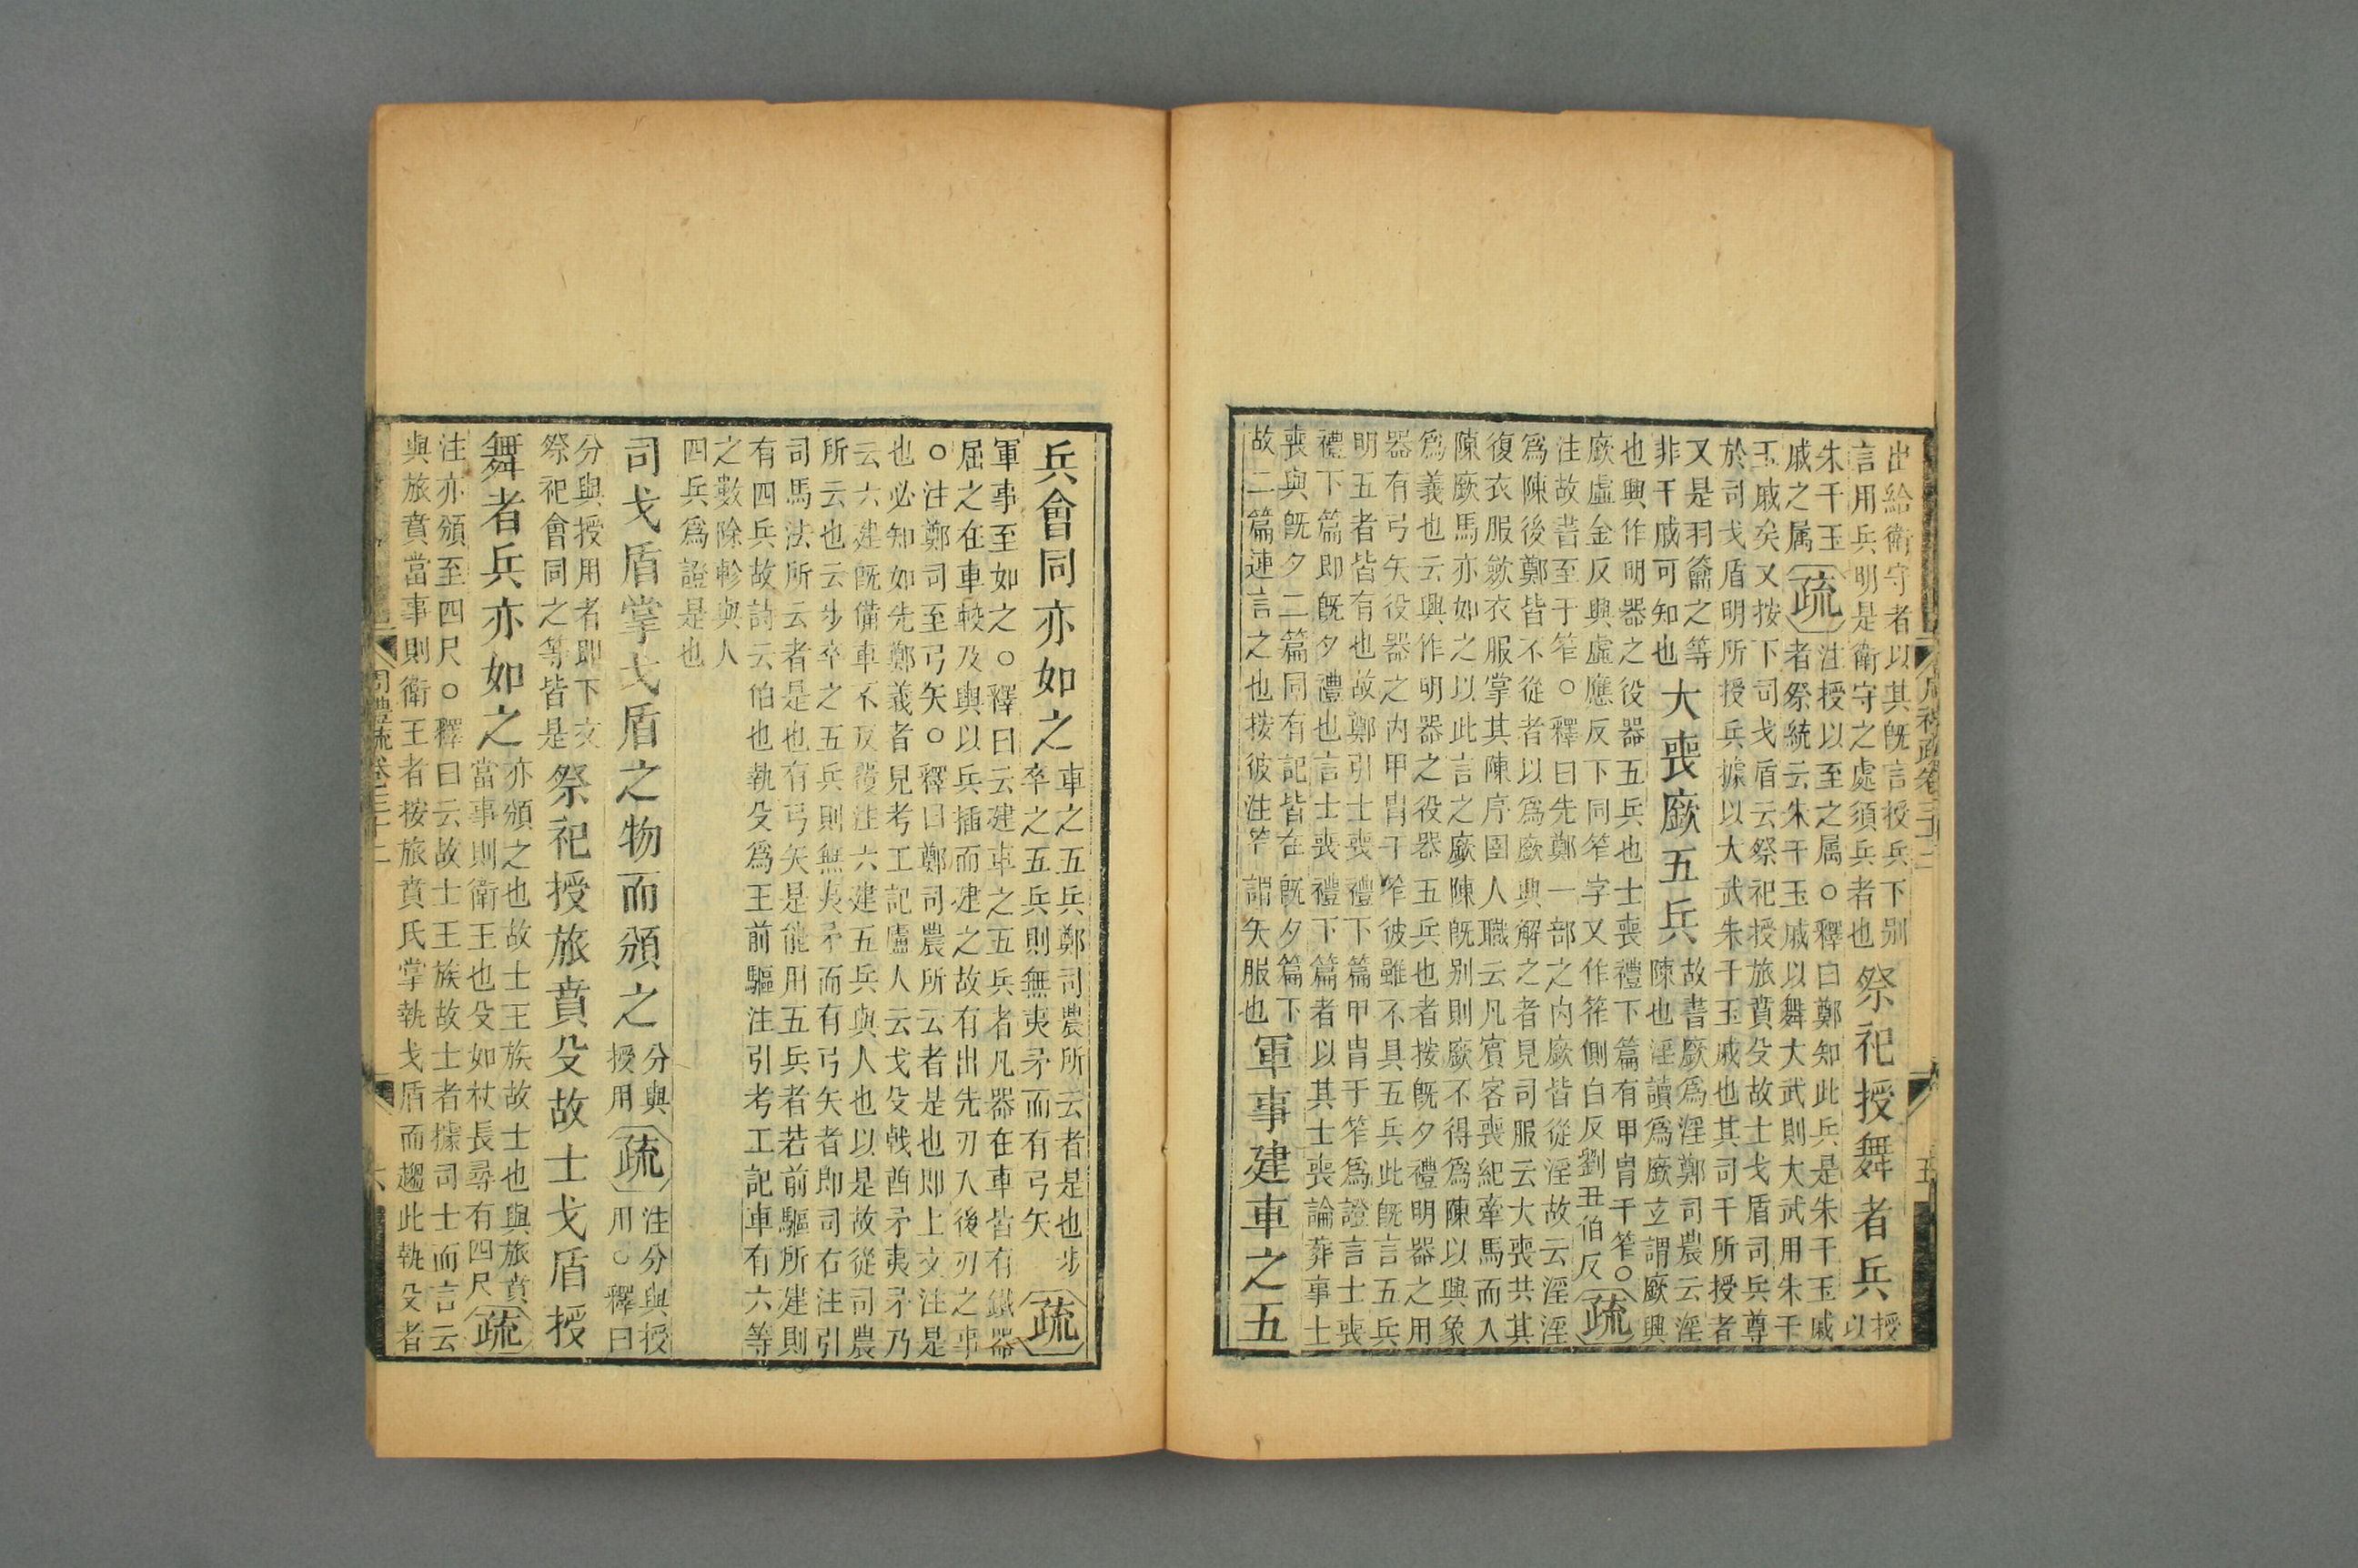 周禮疏卷三十二 五
出給衛守者以其旣言授兵下别
言用兵明是衛守之處須兵者也
祭祀授舞者兵
授
以
朱干玉
戚之属
疏
注授以至之属○釋曰鄭知此兵是朱干玉戚
者祭統云朱干玉戚以舞大武則大武用朱干
玉戚矣又按下司戈盾云祭祀授旅賁殳故士戈盾司兵尊
於司戈盾明所授兵據以大武朱干玉戚也其司干所授者
又是羽籥之等
非干戚可知也
大喪廞五兵
故書廞爲淫鄭司農云淫
陳也淫讀爲廞立謂廞興
也興作明器之役器五兵也士喪禮下篇有甲冑干笮○
廞虛金反興虛應反下同笮字又作筰側白反劉丑伯反
疏
注故書至于笮○釋曰先鄭一部之内廞皆從淫故云淫淫
爲陳後鄭皆不從者以爲廞興解之者見司服云大喪共其
復衣服歛衣服掌其陳序圉人職云凡賓客喪紀牽馬而入
陳廞馬亦如之以此言之廞陳旣别則廞不得爲陳以興象
爲義也云興作明器之役器五兵也者按旣夕禮明器之用
器有弓矢役器之内甲冑干笮彼雖不具五兵此旣言五兵
明五者皆有也故鄭引士喪禮下篇甲冑于笮爲證言士喪
禮下篇即旣夕禮也言士喪禮下篇者以其士喪論葬事士
喪與旣夕二篇同有記皆在旣夕篇下
故二篇連言之也按彼注笮謂矢服也
軍事建車之五
兵會同亦如之
車之五兵鄭司農所云者是也步
卒之五兵則無夷矛而有弓矢
疏
軍事至如之○釋曰云建車之五兵者凡器在車皆有鐵器
屈之在車較及輿以兵插而建之故有出先刃入後刃之事
○注鄭司至弓矢○釋曰鄭司農所云者是也即上文注是
也必知如先鄭義者見考工記廬人云戈殳戟酋矛夷矛乃
云六建旣備車不反覆注六建五兵與人也以是故從司農
所云也云步卒之五兵則無夷矛而有弓矢者即司右注引
司馬法所云者是也有弓矢是能用五兵者若前驅所建則
有四兵故詩云伯也執殳爲王前驅注引考工記車有六等
之數除軫與人
四兵爲證是也
司戈盾掌戈盾之物而頒之
分與
授用
疏
注分與授
用○釋曰
分與授用者即下文
祭祀會同之等皆是
祭祀授旅賁殳故士戈盾授
舞者兵亦如之
亦頒之也故士王族故士也與旅賁
當事則衛王也殳如杖長尋有四尺
疏
注亦頒至四尺○釋曰云故士王族故士者據司士而言云
與旅賁當事則衛王者按旅賁氏掌執戈盾而趨此執殳者
周禮疏卷三十二 六